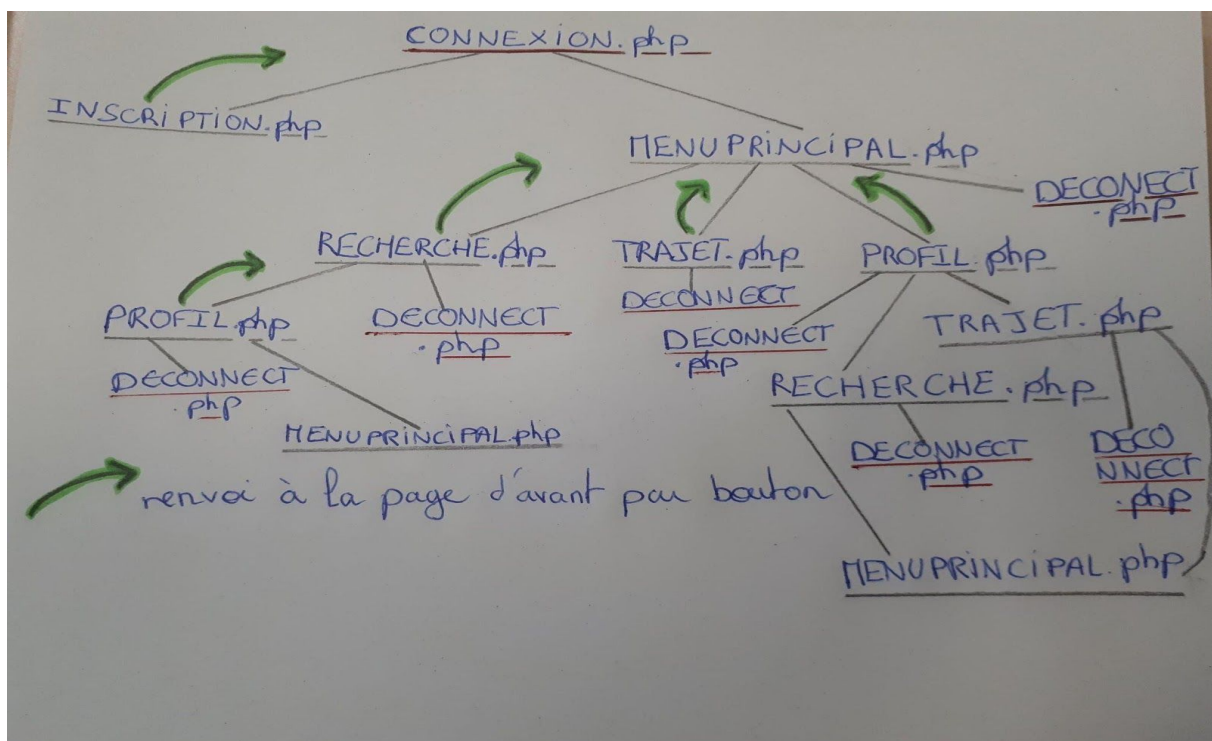 CONNEXION.php
INSCRIPTION.php
MENUPRINCIPAL.php
DECONECT
.php
RECHERCHE.php
TRAJET.php
PROFIL.php
DECONNECT
PROFIL.php
DECONNECT
.php
DECONNECT
.php
TRAJET.php
DECONNECT
.php
RECHERCHE.php
MENUPRINCIPAL.php
DECONNECT
.php
DECO
NNECT
.php
renvoi à la page d'avant par bouton
MENUPRINCIPAL.php